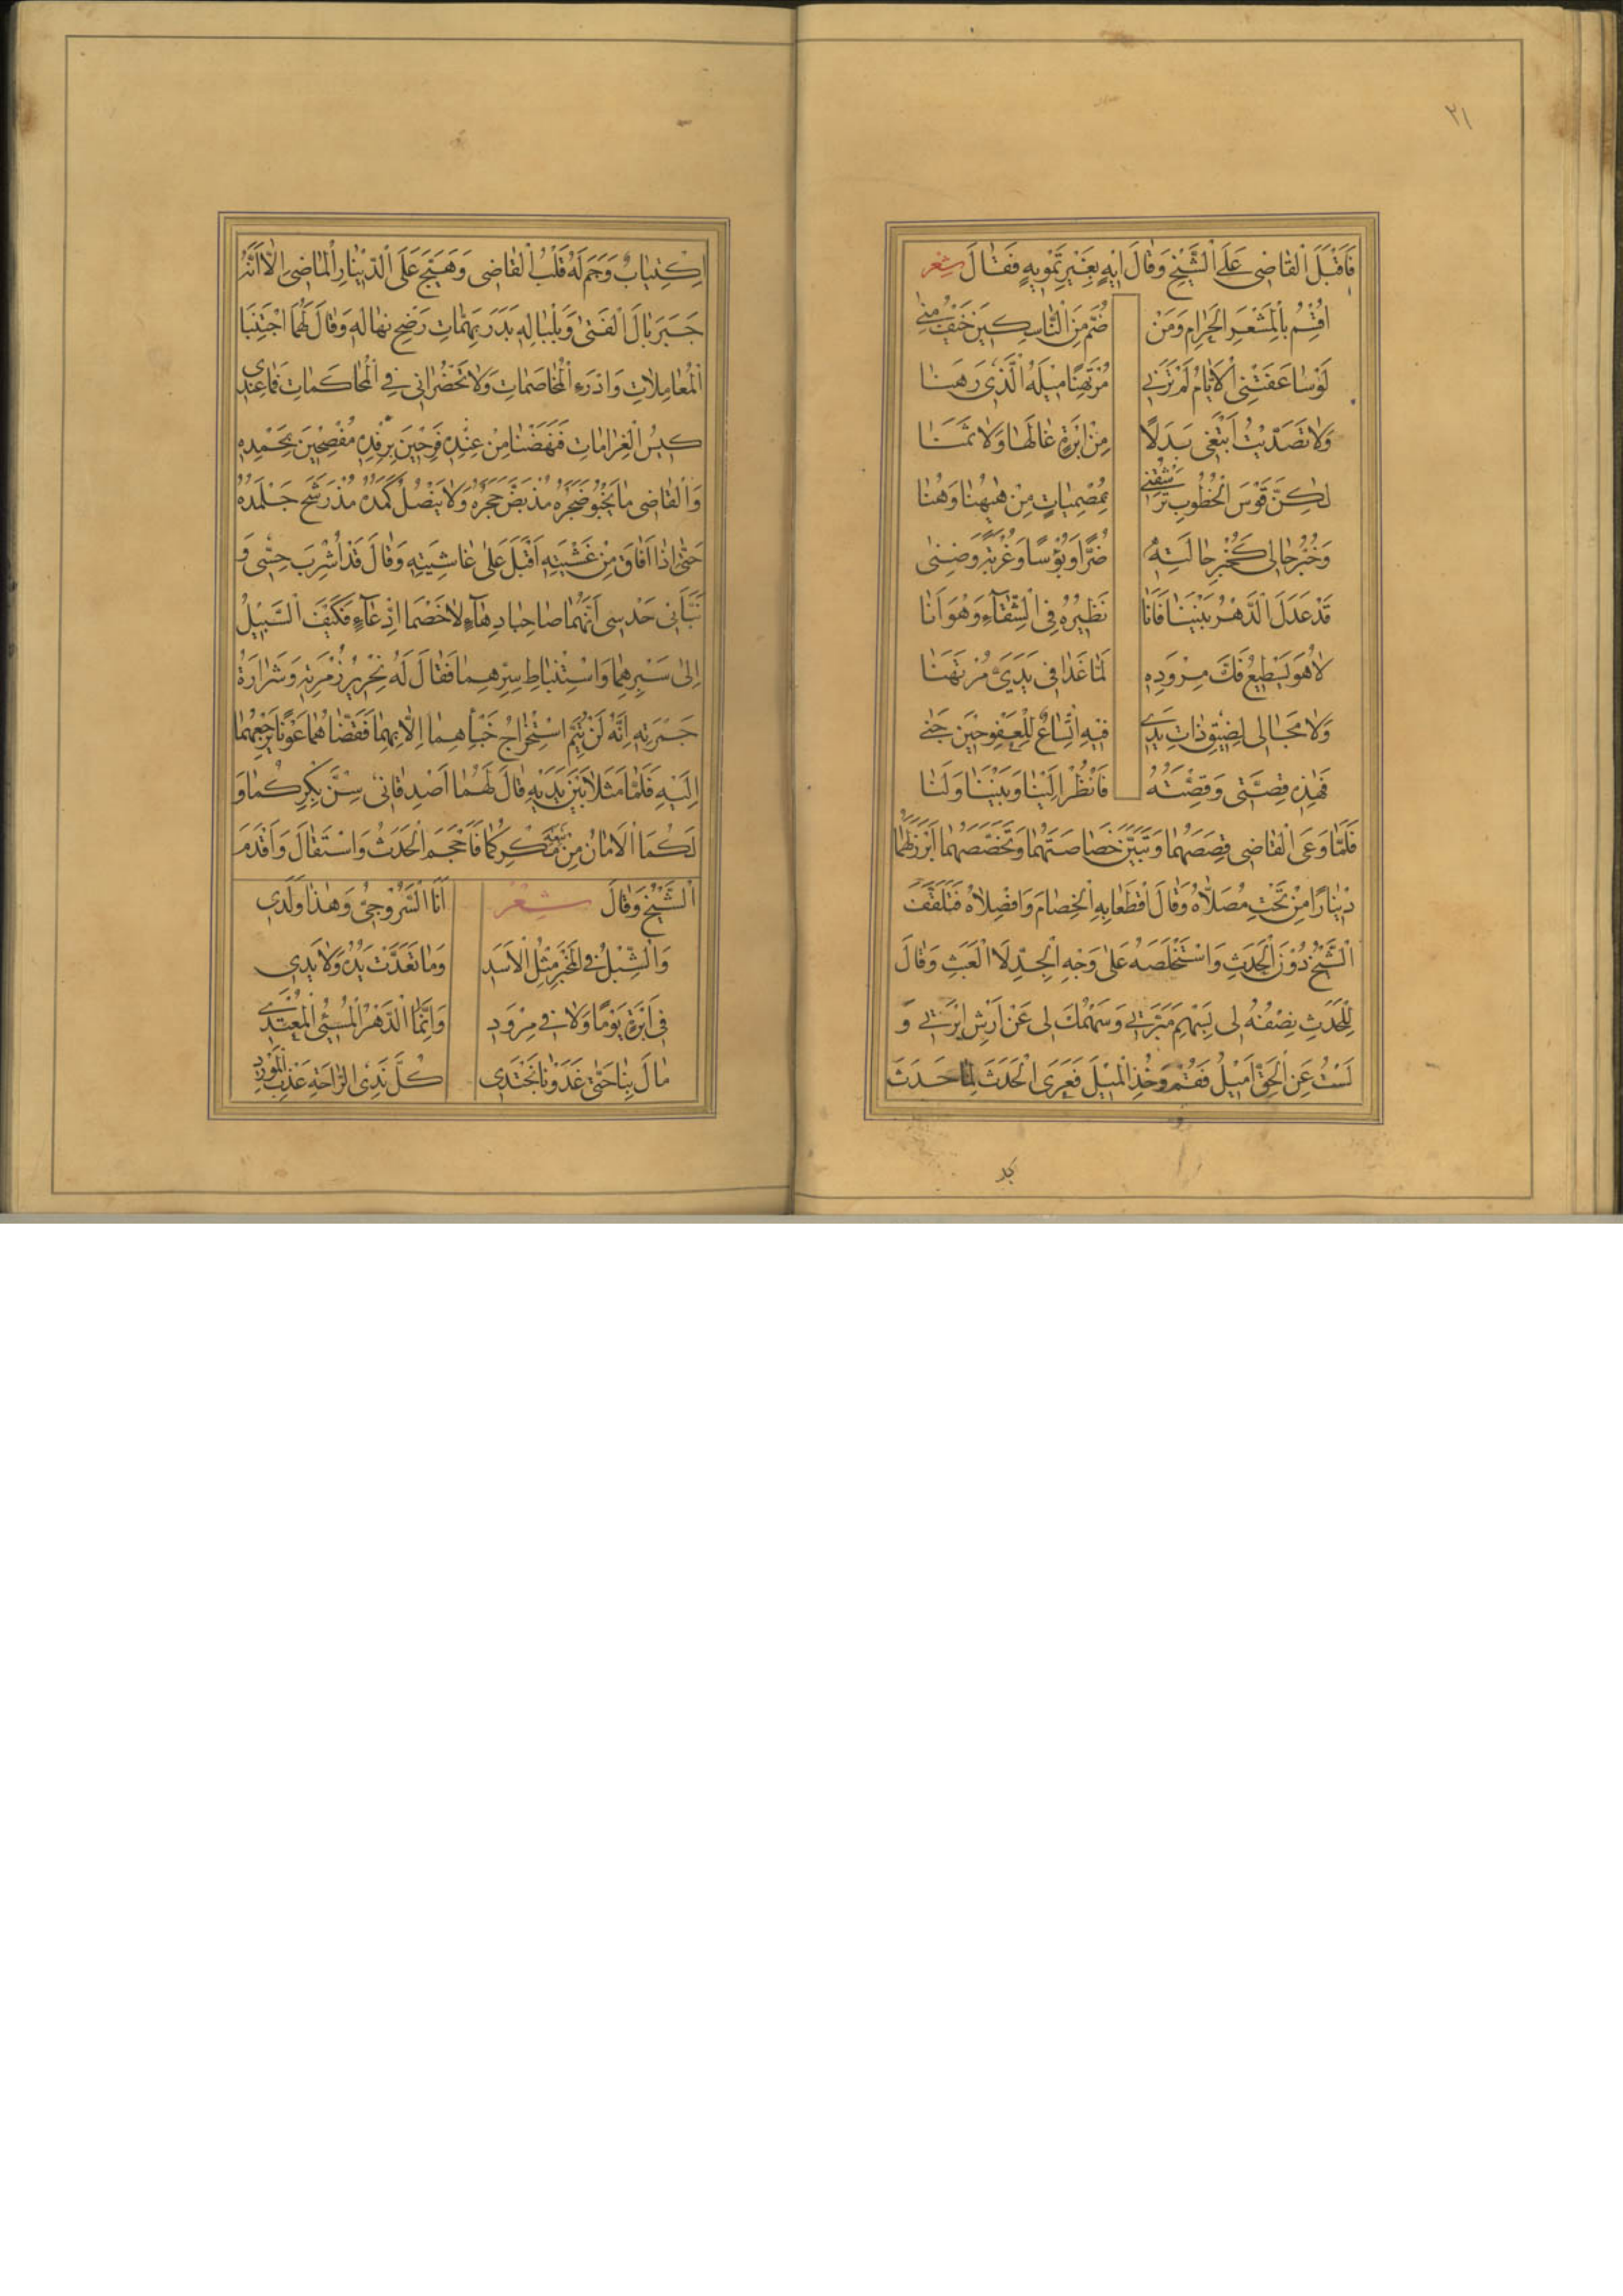 ٢١
فَاَقْبَلَ الْقاضِى عَلَى الشَّيْخِ وَقالَ اِيهٍ بِغَيْرِ تَمْوِيهٍ فَقالَ شِعْر
اُقْسِمُ بِالْمَشْعَرِ الْحَرامِ وَمَنْ ضَمَّ مِنَ النّاسِكِينَ خَيْفُ مِنٰى
لَوْ ساعَفَتْنِى الْاَيّامُ لَمْ تَرَنِى مُرْتَهِنًا مِيلَهُ الَّذِى رَهَنا
وَلا تَصَدَّيْتُ اَبْتَغِى بَدَلًا مِنْ اِبْرَةٍ غالَها وَلا ثَمَنا
لٰكِنَّ قَوْسَ الْخُطُوبِ تَرْشُقُنِى بِمُصْمِياتٍ مِنْ هٰيهُنا وَهُنا
وَخُبْرُ حالِى كَخُبْرِ حالَتِهِ ضُرًّا وَبُؤْسًا وَغُرْبَةً وَضِنٰى
قَدْ عَدَلَ الدَّهْرُ بَيْنَنا فَاَنا نَظِيرُهُ فِى الشَّقآءِ وَهُوَ اَنا
لا هُوَ يَسْطِيعُ فَكَّ مِرْوَدِهِ لَمّا غَدا فِى يَدَىَّ مُرْتَهَنا
وَلا مَجالِى لِضِيقِ ذاتِ يَدِى فِيهِ اتِّساعٌ لِلْعَفْوِ حِينَ جَنٰى
فَهٰذِهِ قِصَّتِى وَقِصَّتُهُ فَانْظُرْ اِلَيْنا وَبَيْنَنا وَلَنا
فَلَمّا وَعَى الْقاضِى قِصَصَهُما وَتَبَيَّنَ خَصاصَتَهُما وَتَخَصُّصَهُما اَبْرَزَ لَهُما
دِينارًا مِنْ تَحْتِ مُصَلّاهُ وَقالَ اقْطَعا بِهِ الْخِصامَ وَافْصِلاهُ فَتَلَقَّفَهُ
الشَّيْخُ دُوْنَ الْحَدَثِ وَاسْتَخْلَصَهُ عَلٰى وَجْهِ الْجِدِّ لَا الْعَبَثِ وَقالَ
لِلْحَدَثِ نِصْفُهُ لِى بِسَهْمِ مَبَرَّتِى وَسَهْمُكَ لِى عَنْ اَرْشِ اِبْرَتِى وَ
لَسْتُ عَنِ الْحَقِّ اَمِيلُ فَقُمْ وَخُذِ الْمِيلَ فَعَرَى الْحَدَثَ لِما حَدَثَ
اِكْتِيابٌ وَجَمَ لَهُ قَلْبُ الْقاضِى وَهَيَّجَ عَلَى الدِّينارِ الْماضِى اِلّا اَنَّهُ
جَبَرَ بالَ الْفَتٰى وَبَلْبالَهِ بِدُرَيْهِماتٍ رَضَخَ بِها لَهُ وَقالَ لَهُما اجْتَنِبا
الْمُعامَلاتِ وَادْرَءا الْمُخاصَماتِ وَلا تَحْضُرانِى فِى الْمُحاكَماتِ فَما عِنْدِى
كِيسُ الْغَراماتِ فَنَهَضْنا مِنْ عِنْدِهِ فَرِحَيْنِ بِرِفْدِهِ مُفْصِحَيْنِ بِحَمْدِهِ
وَالْقاضِى ما يَخْبُو ضَجَرُهُ مُذْ بَضَّ حَجَرُهُ وَلا يَنْصُلُ كَمَدُهُ مُذْ رَشَحَ جَلْمَدُهُ
حَتّٰى اِذا اَفاقَ مِنْ غَشْيَتِهِ اَقْبَلَ عَلٰى غاشِيَتِهِ وَقالَ قَدْ اُشْرِبَ حِسِّى وَ
نَبَّاَنِى حَدْسِى اَنَّهُما صاحِبا دِهآءٍ لا خَصْما ادِّعآءٍ فَكَيْفَ السَّبِيلُ
اِلٰى سَبْرِهِما وَاسْتِنْباطِ سِرِّهِما فَقالَ لَهُ نِحْرِيرُ زُمْرَتِهِ وَشَرارَةُ
جَمْرَتِهِ اِنَّهُ لَنْ يَتِمَّ اسْتِخْراجُ خَبْأِهِما اِلّا بِهِما فَقَفّاهُما عَوْنًا يُرْجِعُهُما
اِلَيْهِ فَلَمّا مَثَلا بَيْنَ يَدَيْهِ قالَ لَهُما اصْدِقانِى سِنَّ بِكْرِكُما وَ
لَكُما الْاَمانُ مِنْ تَبِعَةِ مَكْرِكُما فَاَحْجَمَ الْحَدَثُ وَاسْتَقالَ وَاَقْدَمَ
الشَّيْخُ وَقالَ شِعْر اَنَا السَّرُوجِىُّ وَهٰذا وَلَدِى
وَالشِّبْلُ فِى الْمَخْبَرِ مِثْلُ الْاَسَدِ وَما تَعَدَّتْ يَدُهُ وَلا يَدِى
فِى اِبْرَةٍ يَوْمًا وَلا فِى مِرْوَدِ وَاِنَّما الدَّهْرُ الْمُسِئُ الْمُعْتَدِى
مالَ بِنا حَتّٰى غَدَوْنا نَجْتَدِى كُلَّ نَدِى الرّاحَةِ عَذْبِ الْمَوْرِدِ